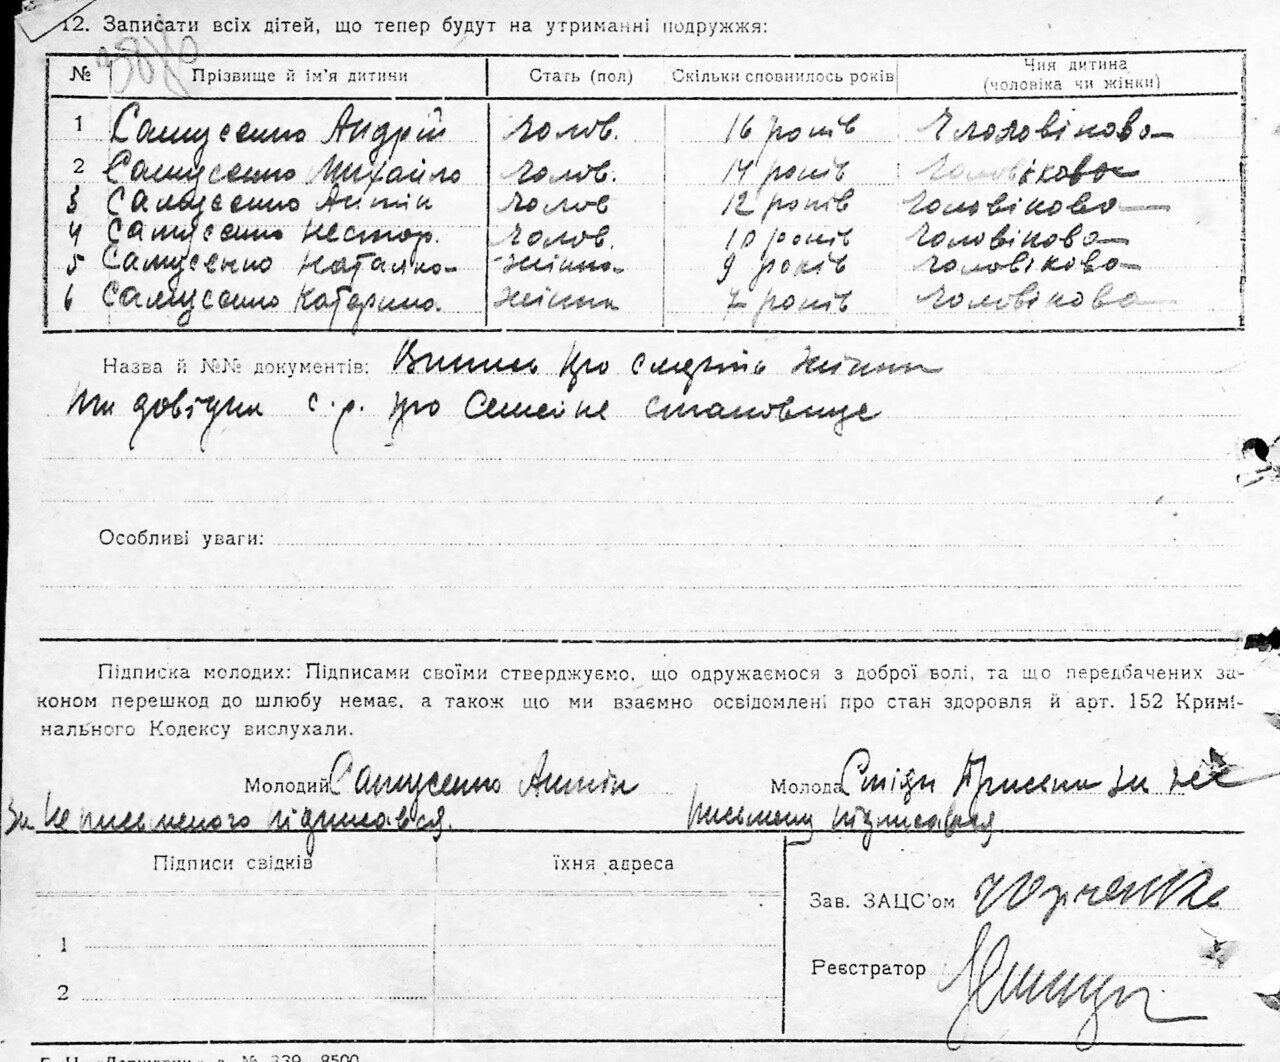 12. Записати всіх дітей, що тепер будут на утриманні подружжя:
№ Прізвище й ім'я дитини Стать (пол) Скільки сповнилось років Чия дитина
(чоловіка чи жінки)
1 Самусенко Андрій чолов. 16 років Чоловікова
2 Самусенко Михайло чолов. 14 років Чоловікова
3 Самусенко Антін чолов 12 років Чоловікова
4 Самусенко Нестор. чолов. 10 років Чоловікова
5 Самусенко Наталка жінка 9 років Чоловікова
6 Самусенко Катерина. жінка 7 років Чоловікова
Назва й №№ документів: Випись про смерть жінки
та довідка с.р. про Семейне становище
Особливі уваги:
Підписка молодих: Підписами своїми стверджуємо, що одружаємося з доброї волі, та що передбачених за-
коном перешкод до шлюбу немає, а також що ми взаємно освідомлені про стан здоровля й арт. 152 Кримі-
нального Кодексу вислухали.
Молодий Самусенко Антін Молода Присека за не
За не письменого підписався. письмену підписався
Підписи свідків їхня адреса
Зав. ЗАЦС'ом
1
Реєстратор
2
№ 339 8500